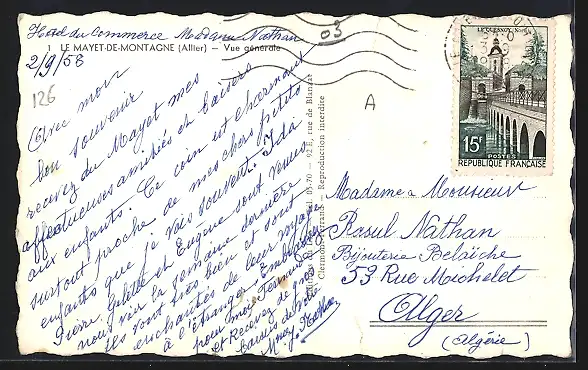 Hotel du Commerce Madame Nathan
1 LE MAYET-DE-MONTAGNE (Allier) — Vue générale
2/9/58
126
Avec mon
bon souvenir
recevez du Mayet mes
affectueuses amitiés et baisers
aux enfants. Ce coin est charmant
surtout proche de mes chers petits
enfants que je vois souvent. Ida
Pierre, et Eugène sont venus
nous voir la semaine dernière
Ils vont très bien et sont
enchantés de leur voyage
à l'étranger. Embrassez
pour moi
et Recevez de gros
baisers de
Mme J. Nathan
Clermont-Ferrand. Reproduction interdite
rue de
03
A
LE QUESNOY. Nord
15F
POSTES
RÉPUBLIQUE FRANÇAISE
Madame & Monsieur
Raoul Nathan
Bijouterie Belaïche
53 Rue Michelet
Alger
(Algérie)